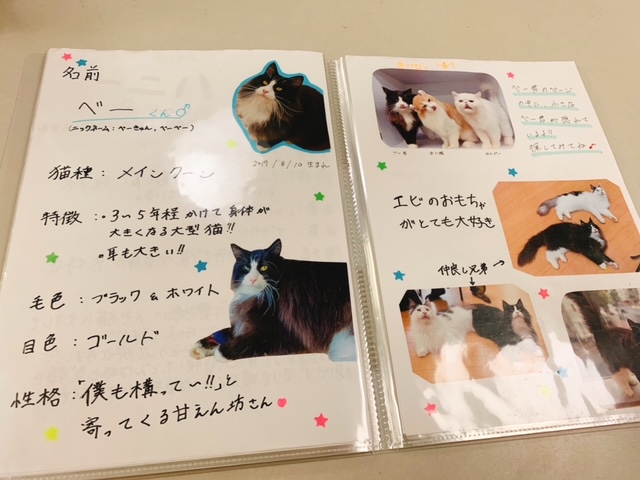 名前
べー くん♂
(ニックネーム:べーきゅん、べーべー)
2017/4/10 生まれ
猫種:メインクーン
特徴:・3〜5年程かけて身体が
大きくなる大型猫!!
・耳も大きい!!
毛色:ブラック&ホワイト
目色:ゴールド
性格:「僕も構って〜!!」と
寄ってくる甘えん坊さん
べー君のページ
のどこかに
べー君が隠れて
います!!
探してみてね♪
エビのおもちゃ
がとても大好き
仲良し兄弟→